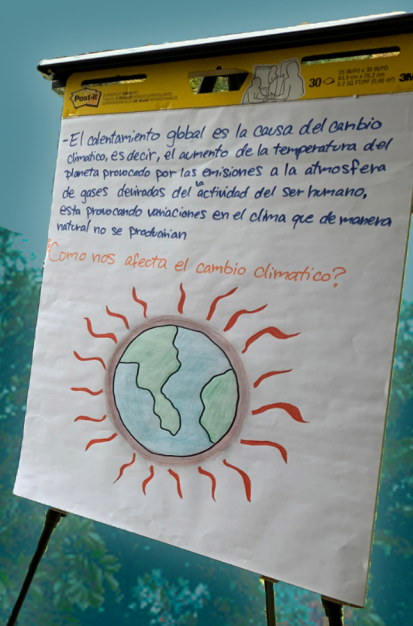 Post-it
30
3M
-El calentamiento global es la causa del cambio
climatico, es decir, el aumento de la temperatura del
planeta provocado por las emisiones a la atmosfera
de gases derivados de la actividad del ser humano,
esta provocando variaciones en el clima que de manera
natural no se producirian
¿Como nos afecta el cambio climatico?